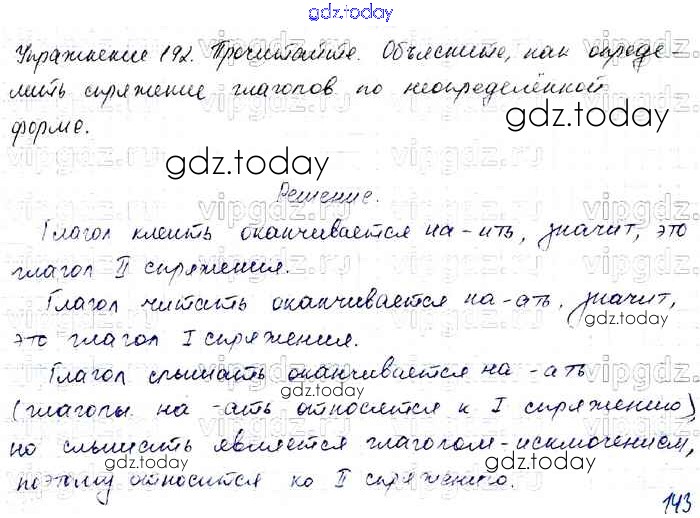 gdz.today
Упражнение 192. Прочитайте. Объясните, как опреде-
лить спряжение глаголов по неопределённой
форме.
gdz.today
gdz.today
Решение.
Глагол клеить оканчивается на -ить, значит, это
глагол II спряжения.
Глагол читать оканчивается на -ать, значит,
это глагол I спряжения.
gdz.today
Глагол слышать оканчивается на -ать
(глаголы на -ать относятся к I спряжению),
но слышать является глаголом-исключением,
поэтому относится ко II спряжению.
gdz.today
gdz.today
143